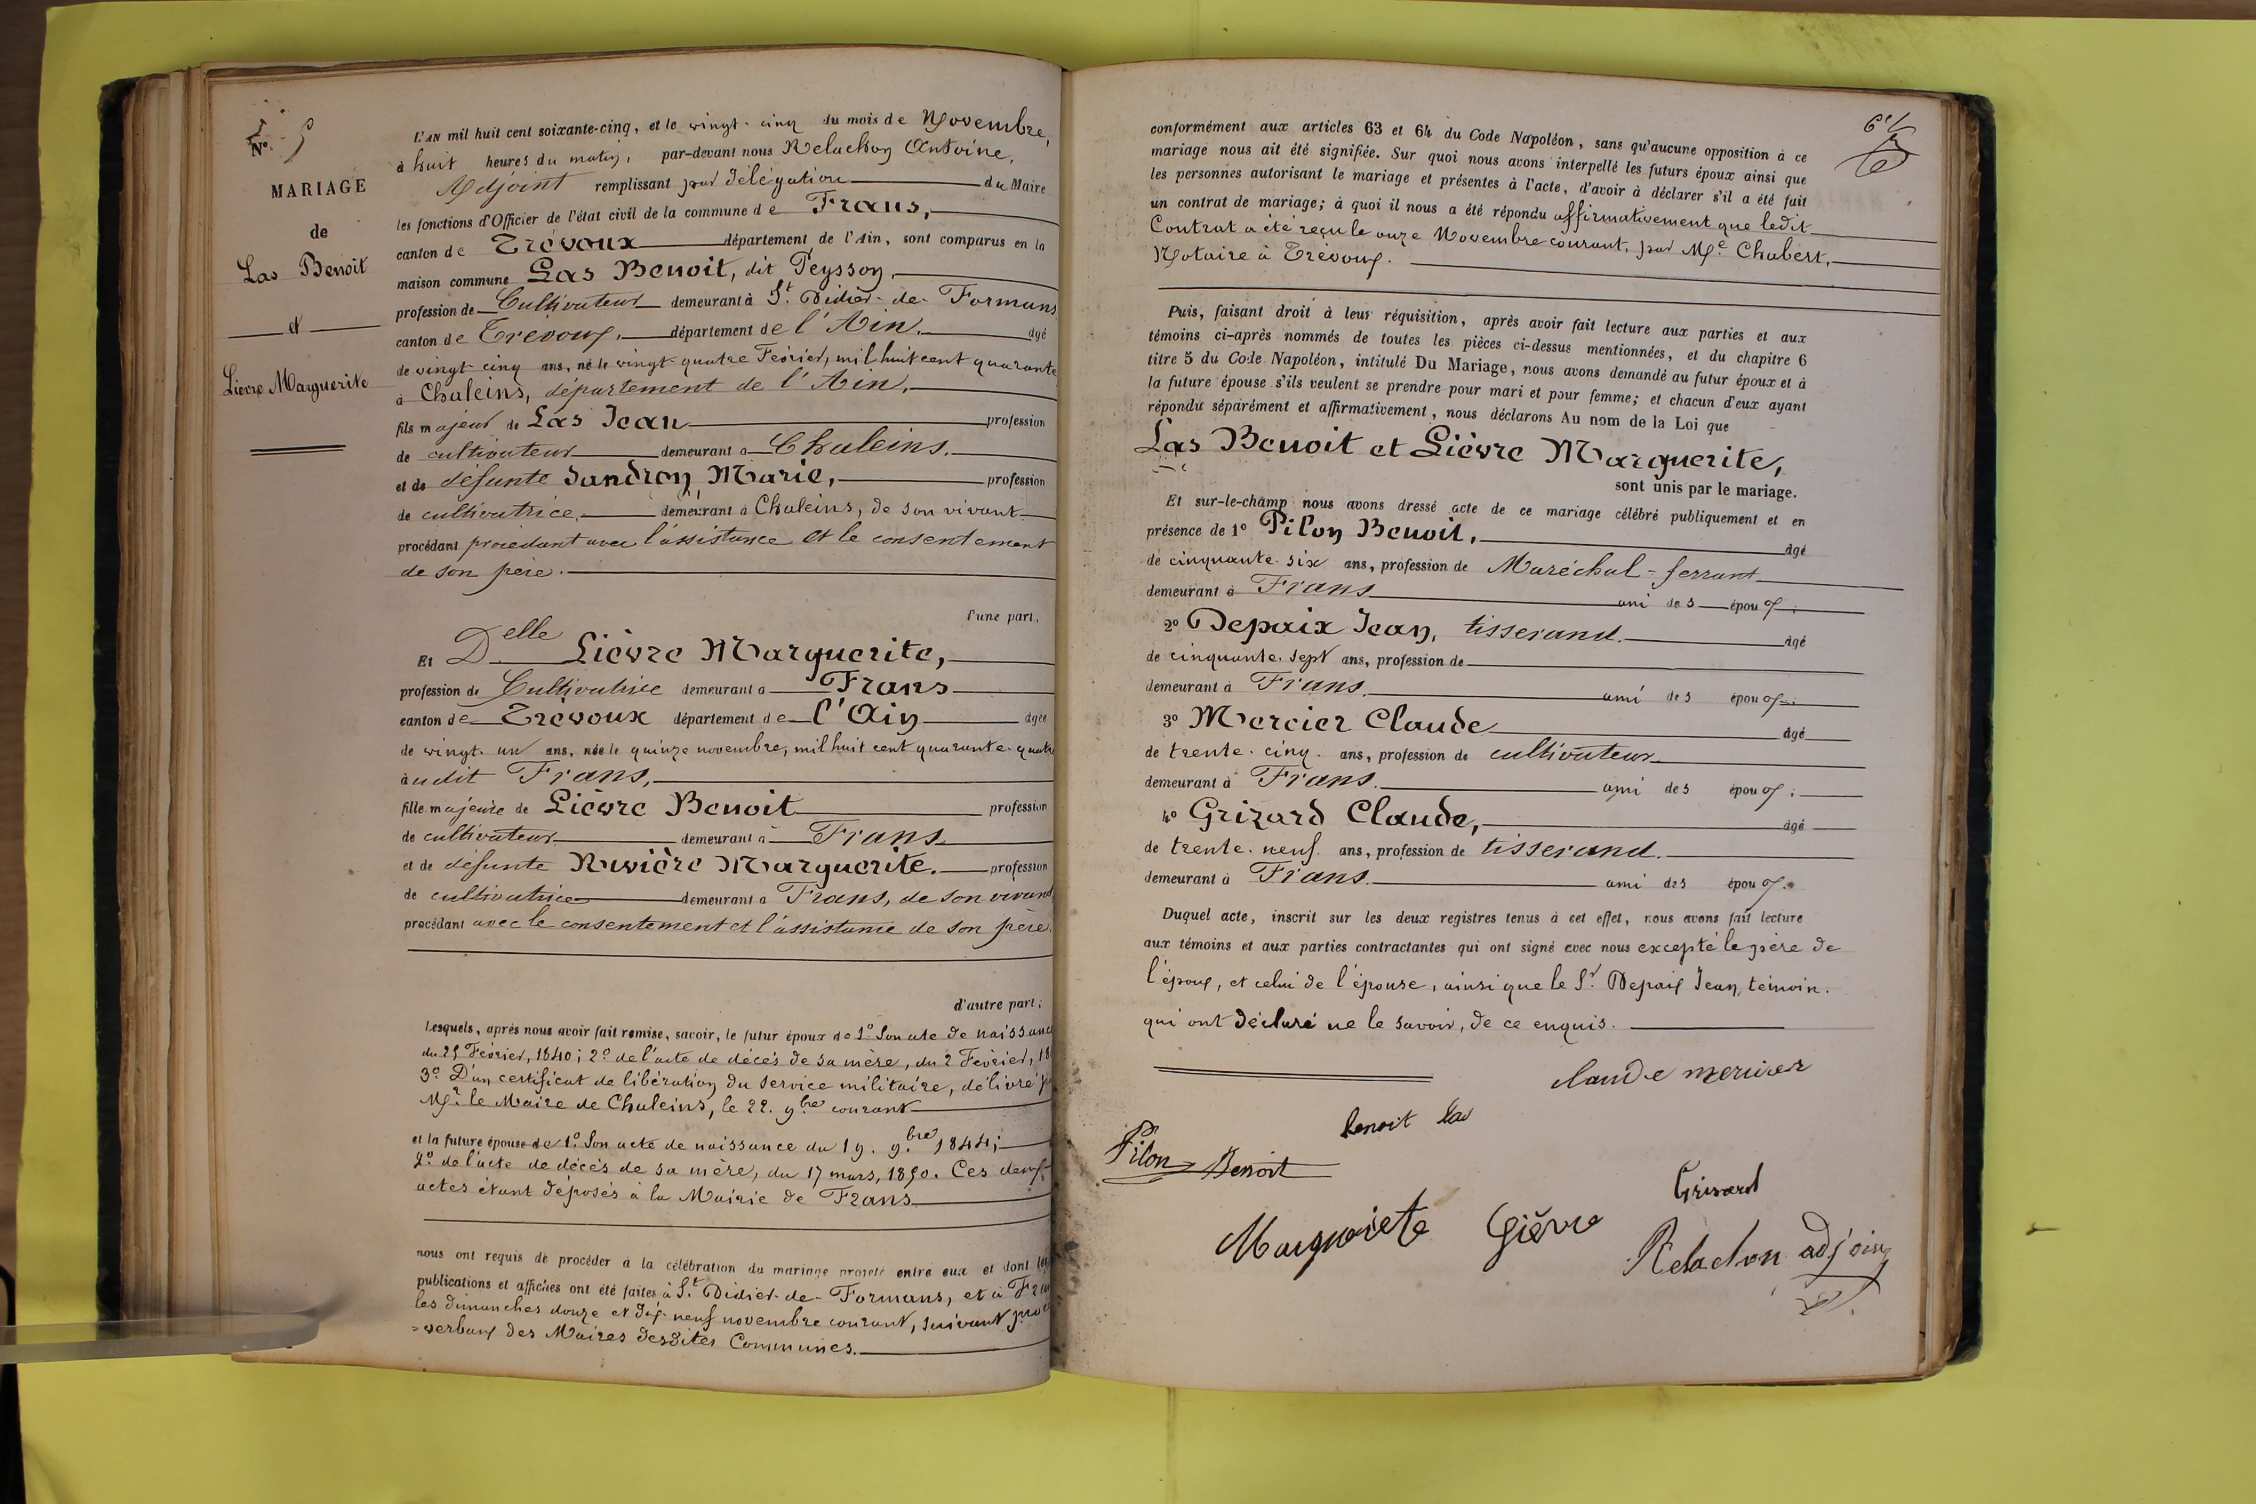 N.° 5
MARIAGE
de
Las Benoit
et
Lièvre Marguerite
L'AN mil huit cent soixante-cinq, et le vingt-cinq du mois de Novembre,
à huit heures du matin, par-devant nous Relachon Antoine,
Adjoint remplissant par délégation du Maire
les fonctions d'Officier de l'état civil de la commune de Frans,
canton de Trévoux département de l'Ain, sont comparus en la
maison commune Las Benoit, dit Peysson,
profession de Cultivateur demeurant à St. Didier-de-Formans
canton de Trévoux, département de l'Ain, âgé
de vingt-cinq ans, né le vingt-quatre Février, mil huit cent quarante
à Chaleins, département de l'Ain,
fils majeur de Las Jean profession
de cultivateur demeurant à Chaleins.
et de défunte Sandron Marie, profession
de cultivatrice, demeurant à Chaleins, de son vivant
procédant procédant avec l'assistance et le consentement
de son père.
d'une part,
Et Delle Lièvre Marguerite,
profession de Cultivatrice demeurant à Frans
canton de Trévoux département de l'Ain âgée
de vingt-un ans, née le quinze novembre, mil huit cent quarante-quatre
à udit Frans,
fille majeure de Lièvre Benoit profession
de cultivateur demeurant à Frans
et de défunte Rivière Marguerite. profession
de cultivatrice demeurant à Frans, de son vivant
procédant avec le consentement et l'assistance de son père.
d'autre part;
Lesquels, après nous avoir fait remise, savoir, le futur époux de 1° Son acte de naissance
du 25 Février, 1840; 2° de l'acte de décès de sa mère, du 2 Février, 18
3° D'un certificat de libération du service militaire, délivré p
Mr. le Maire de Chaleins, le 22. 9bre courant
et la future épouse de 1° Son acte de naissance du 19. 9bre, 1844;
2° de l'acte de décès de sa mère, du 17 mars, 1850. Ces deux
actes étant déposés à la Mairie de Frans
nous ont requis de procéder à la célébration du mariage projeté entre eux et dont les
publications et affiches ont été faites à St. Didier-de-Formans, et à Frans
les dimanches douze et dix-neuf novembre courant, suivant procès
=verbaux des Maires desdites Communes.
conformément aux articles 63 et 64 du Code Napoléon, sans qu'aucune opposition à ce
mariage nous ait été signifiée. Sur quoi nous avons interpellé les futurs époux ainsi que
les personnes autorisant le mariage et présentes à l'acte, d'avoir à déclarer s'il a été fait
un contrat de mariage; à quoi il nous a été répondu affirmativement que ledit
Contrat a été reçu le onze Novembre courant, par Me Chabert,
Notaire à Trévoux.
Puis, faisant droit à leur réquisition, après avoir fait lecture aux parties et aux
témoins ci-après nommés de toutes les pièces ci-dessus mentionnées, et du chapitre 6
titre 5 du Code Napoléon, intitulé Du Mariage, nous avons demandé au futur époux et à
la future épouse s'ils veulent se prendre pour mari et pour femme; et chacun d'eux ayant
répondu séparément et affirmativement, nous déclarons Au nom de la Loi que
Las Benoit et Lièvre Marguerite,
sont unis par le mariage.
Et sur-le-champ nous avons dressé acte de ce mariage célébré publiquement et en
présence de 1° Pilon Benoit, âgé
de cinquante-six ans, profession de Maréchal-ferrant
demeurant à Frans ami des époux;
2° Depaix Jean, tisserand. âgé
de cinquante-sept ans, profession de
demeurant à Frans. ami des époux;
3° Mercier Claude âgé
de trente-cinq ans, profession de cultivateur
demeurant à Frans. ami des époux;
4° Grizard Claude, âgé
de trente-neuf ans, profession de tisserand.
demeurant à Frans. ami des époux.
Duquel acte, inscrit sur les deux registres tenus à cet effet, nous avons fait lecture
aux témoins et aux parties contractantes qui ont signé avec nous excepté le père de
l'époux, et celui de l'épouse, ainsi que le Sr. Depaix Jean, témoin.
qui ont déclaré ne le savoir, de ce enquis.
Claude mercier
benoit las
Pilon Benoit
Grisard
Marguerite Lièvre
Relachon adjoint